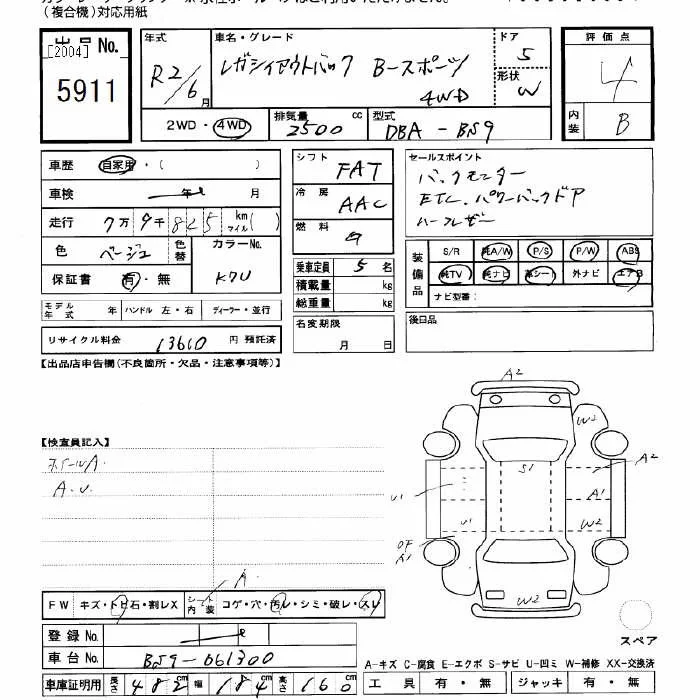 （複合機）対応用紙
出品 No.
[2004]
5911
年式
R2/6月
車名・グレード
レガシィアウトバック Bースポーツ
4WD
ドア
5
形状
W
評価点
4
内装
B
2WD・4WD
排気量
2500 cc
型式
DBA - BS9
車歴 自家用・( )
車検 年 月
走行 7万9千825 km マイル( )
色 ベージュ 色替 カラーNo.
K7U
保証書 有・無
モデル年式 年 ハンドル 左・右 ディーラー・並行
リサイクル料金 13610 円 預託済
シフト FAT
冷房 AAC
燃料 G
乗車定員 5 名
積載量 kg
総重量 kg
名変期限
月 日
セールスポイント
バックモニター
ETC. パワーバックドア
ハーフレザー
装備品
S/R 純A/W P/S P/W ABS
純TV 純ナビ 革シート 外ナビ エアB
ナビ型番：
後日品
【出品店申告欄(不良箇所・欠品・注意事項等)】
【検査員記入】
ホイールA.
A.U.
A2
W2
S1
A2
U1
A1
U1
W2
A1
W2
A.
FW キズ・トビ石・割レX シート内装 コゲ・穴・汚レ・シミ・破レ・スレ
登録 No.
車台 No. BS9-061300
車庫証明用 長さ 482 cm 幅 184 cm 高さ 160 cm
スペア
A-キズ C-腐食 E-エクボ S-サビ U-凹ミ W-補修 XX-交換済
工具 有・無 ジャッキ 有・無